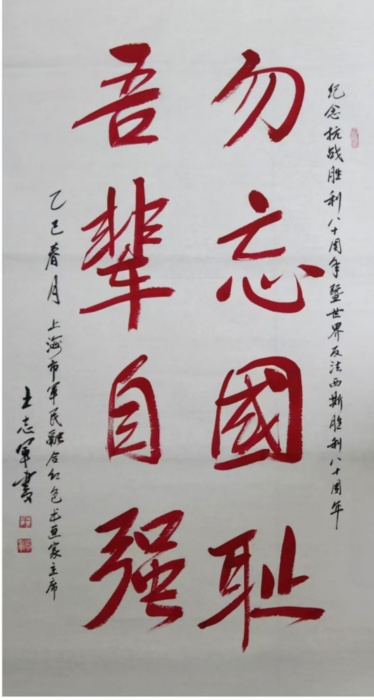 纪念抗战胜利八十周年暨世界反法西斯胜利八十周年
勿忘國耻
吾輩自强
乙巳春月 上海市军民融合红色书画家主席
王志军書